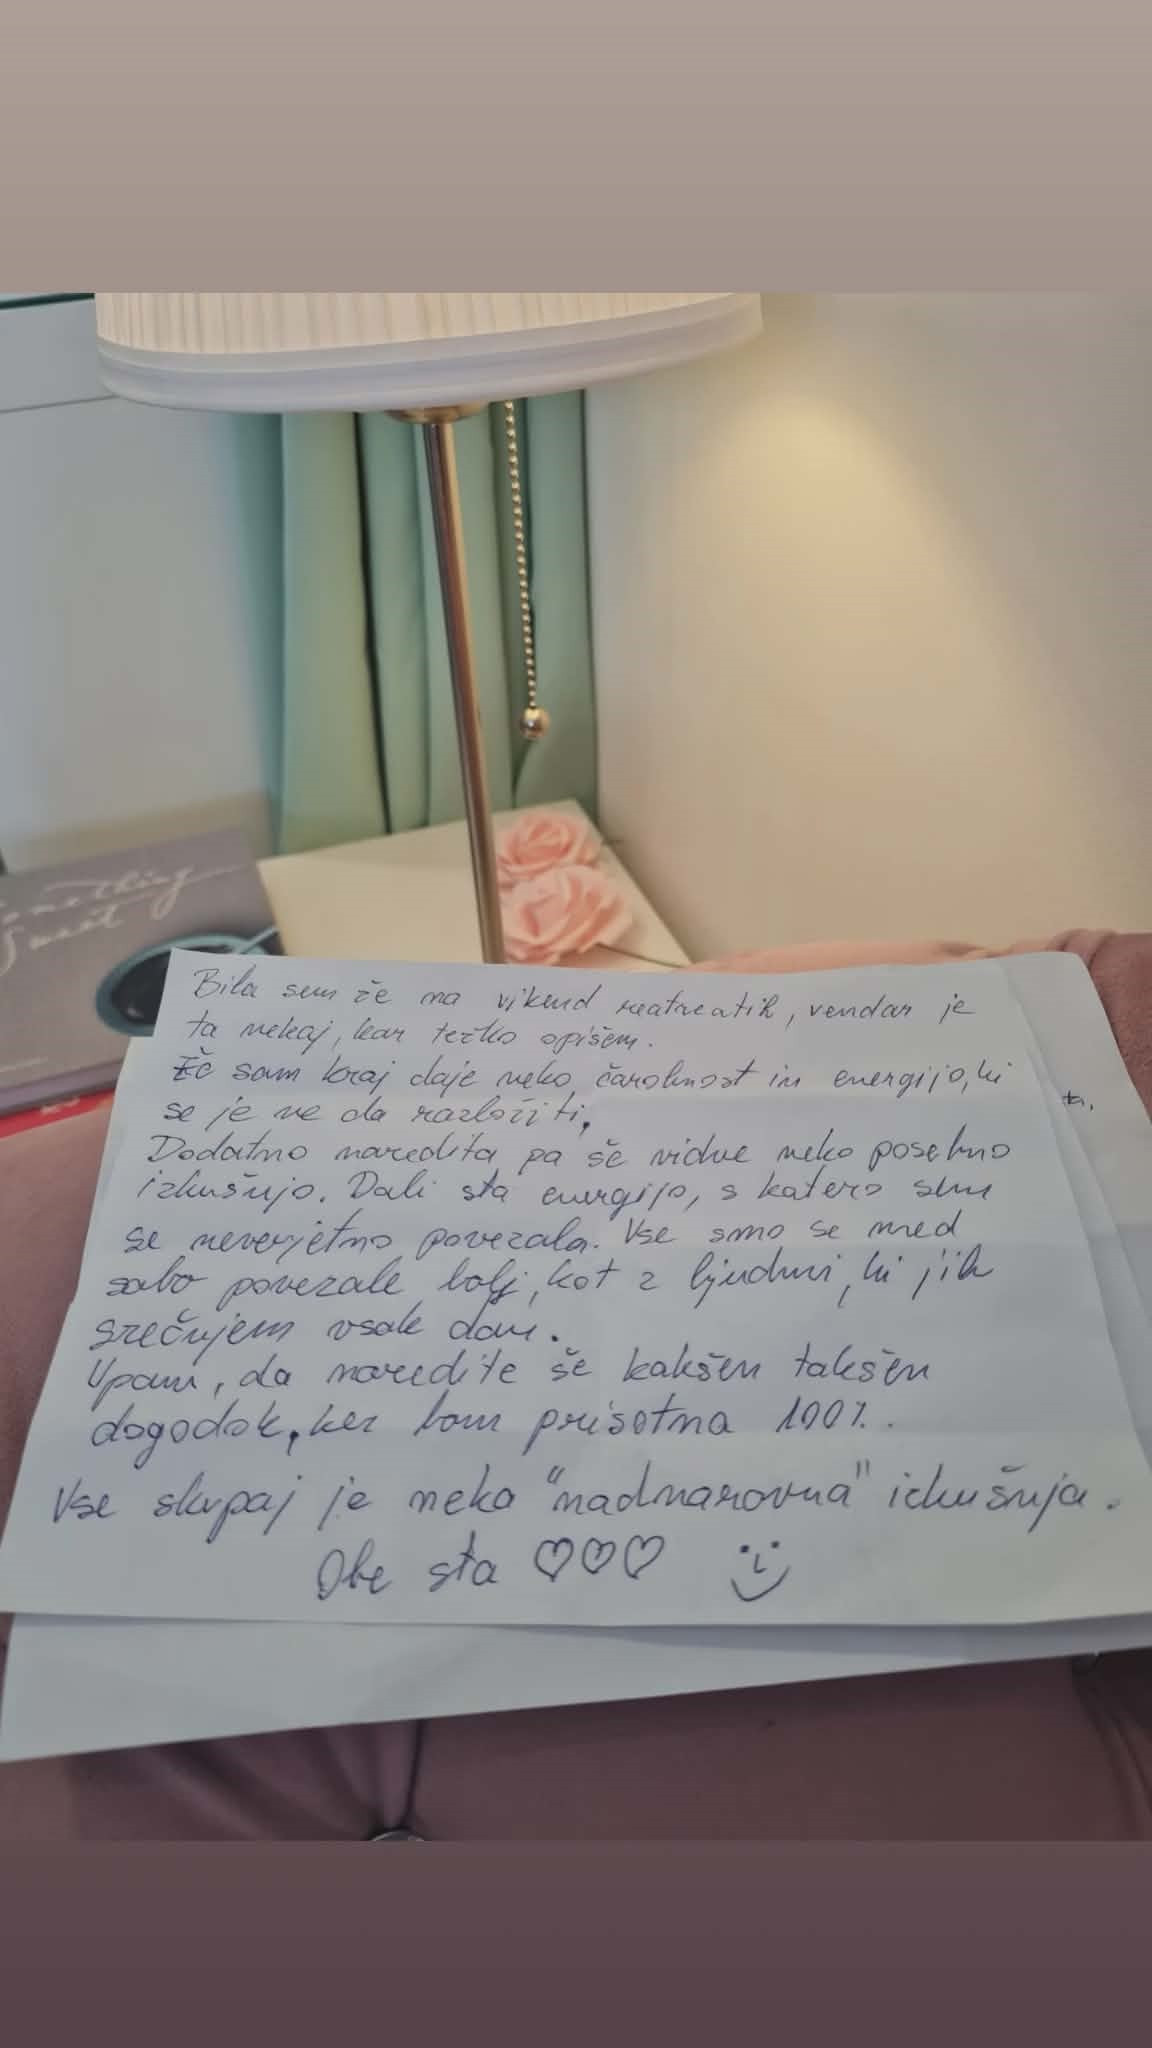 Something
Sweet
Bila sem že na vikend reatreatih, vendar je
ta nekaj, kar težko opišem.
Že sam kraj daje neko čarobnost in energijo, ki
se je ne da razložiti.
Dodatno naredita pa še vidve neko posebno
izkušnjo. Dali sta energijo, s katero sem
se neverjetno povezala. Vse smo se med
sabo povezale bolj, kot z ljudmi, ki jih
srečujem vsak dan.
Upam, da naredite še kakšen takšen
dogodek, ker bom prisotna 100%.
Vse skupaj je neka "nadnaravna" izkušnja.
Obe sta ♡♡♡